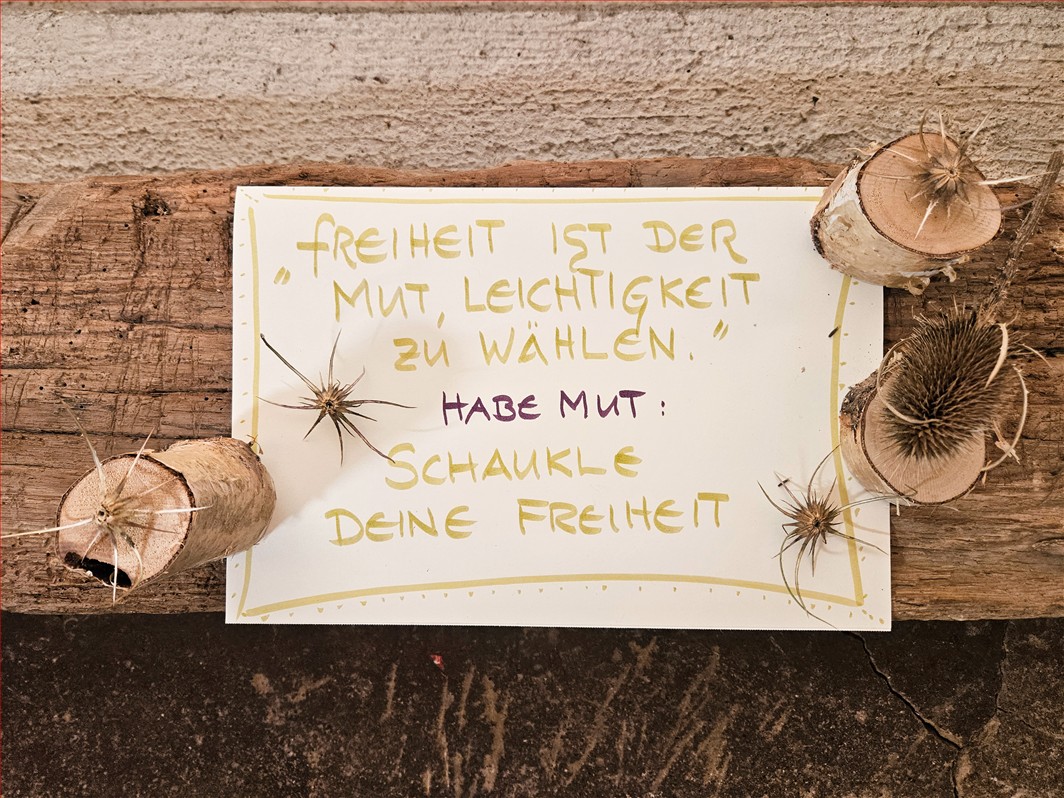 FREIHEIT IST DER
„MUT, LEICHTIGKEIT
ZU WÄHLEN."
HABE MUT:
SCHAUKLE
DEINE FREIHEIT